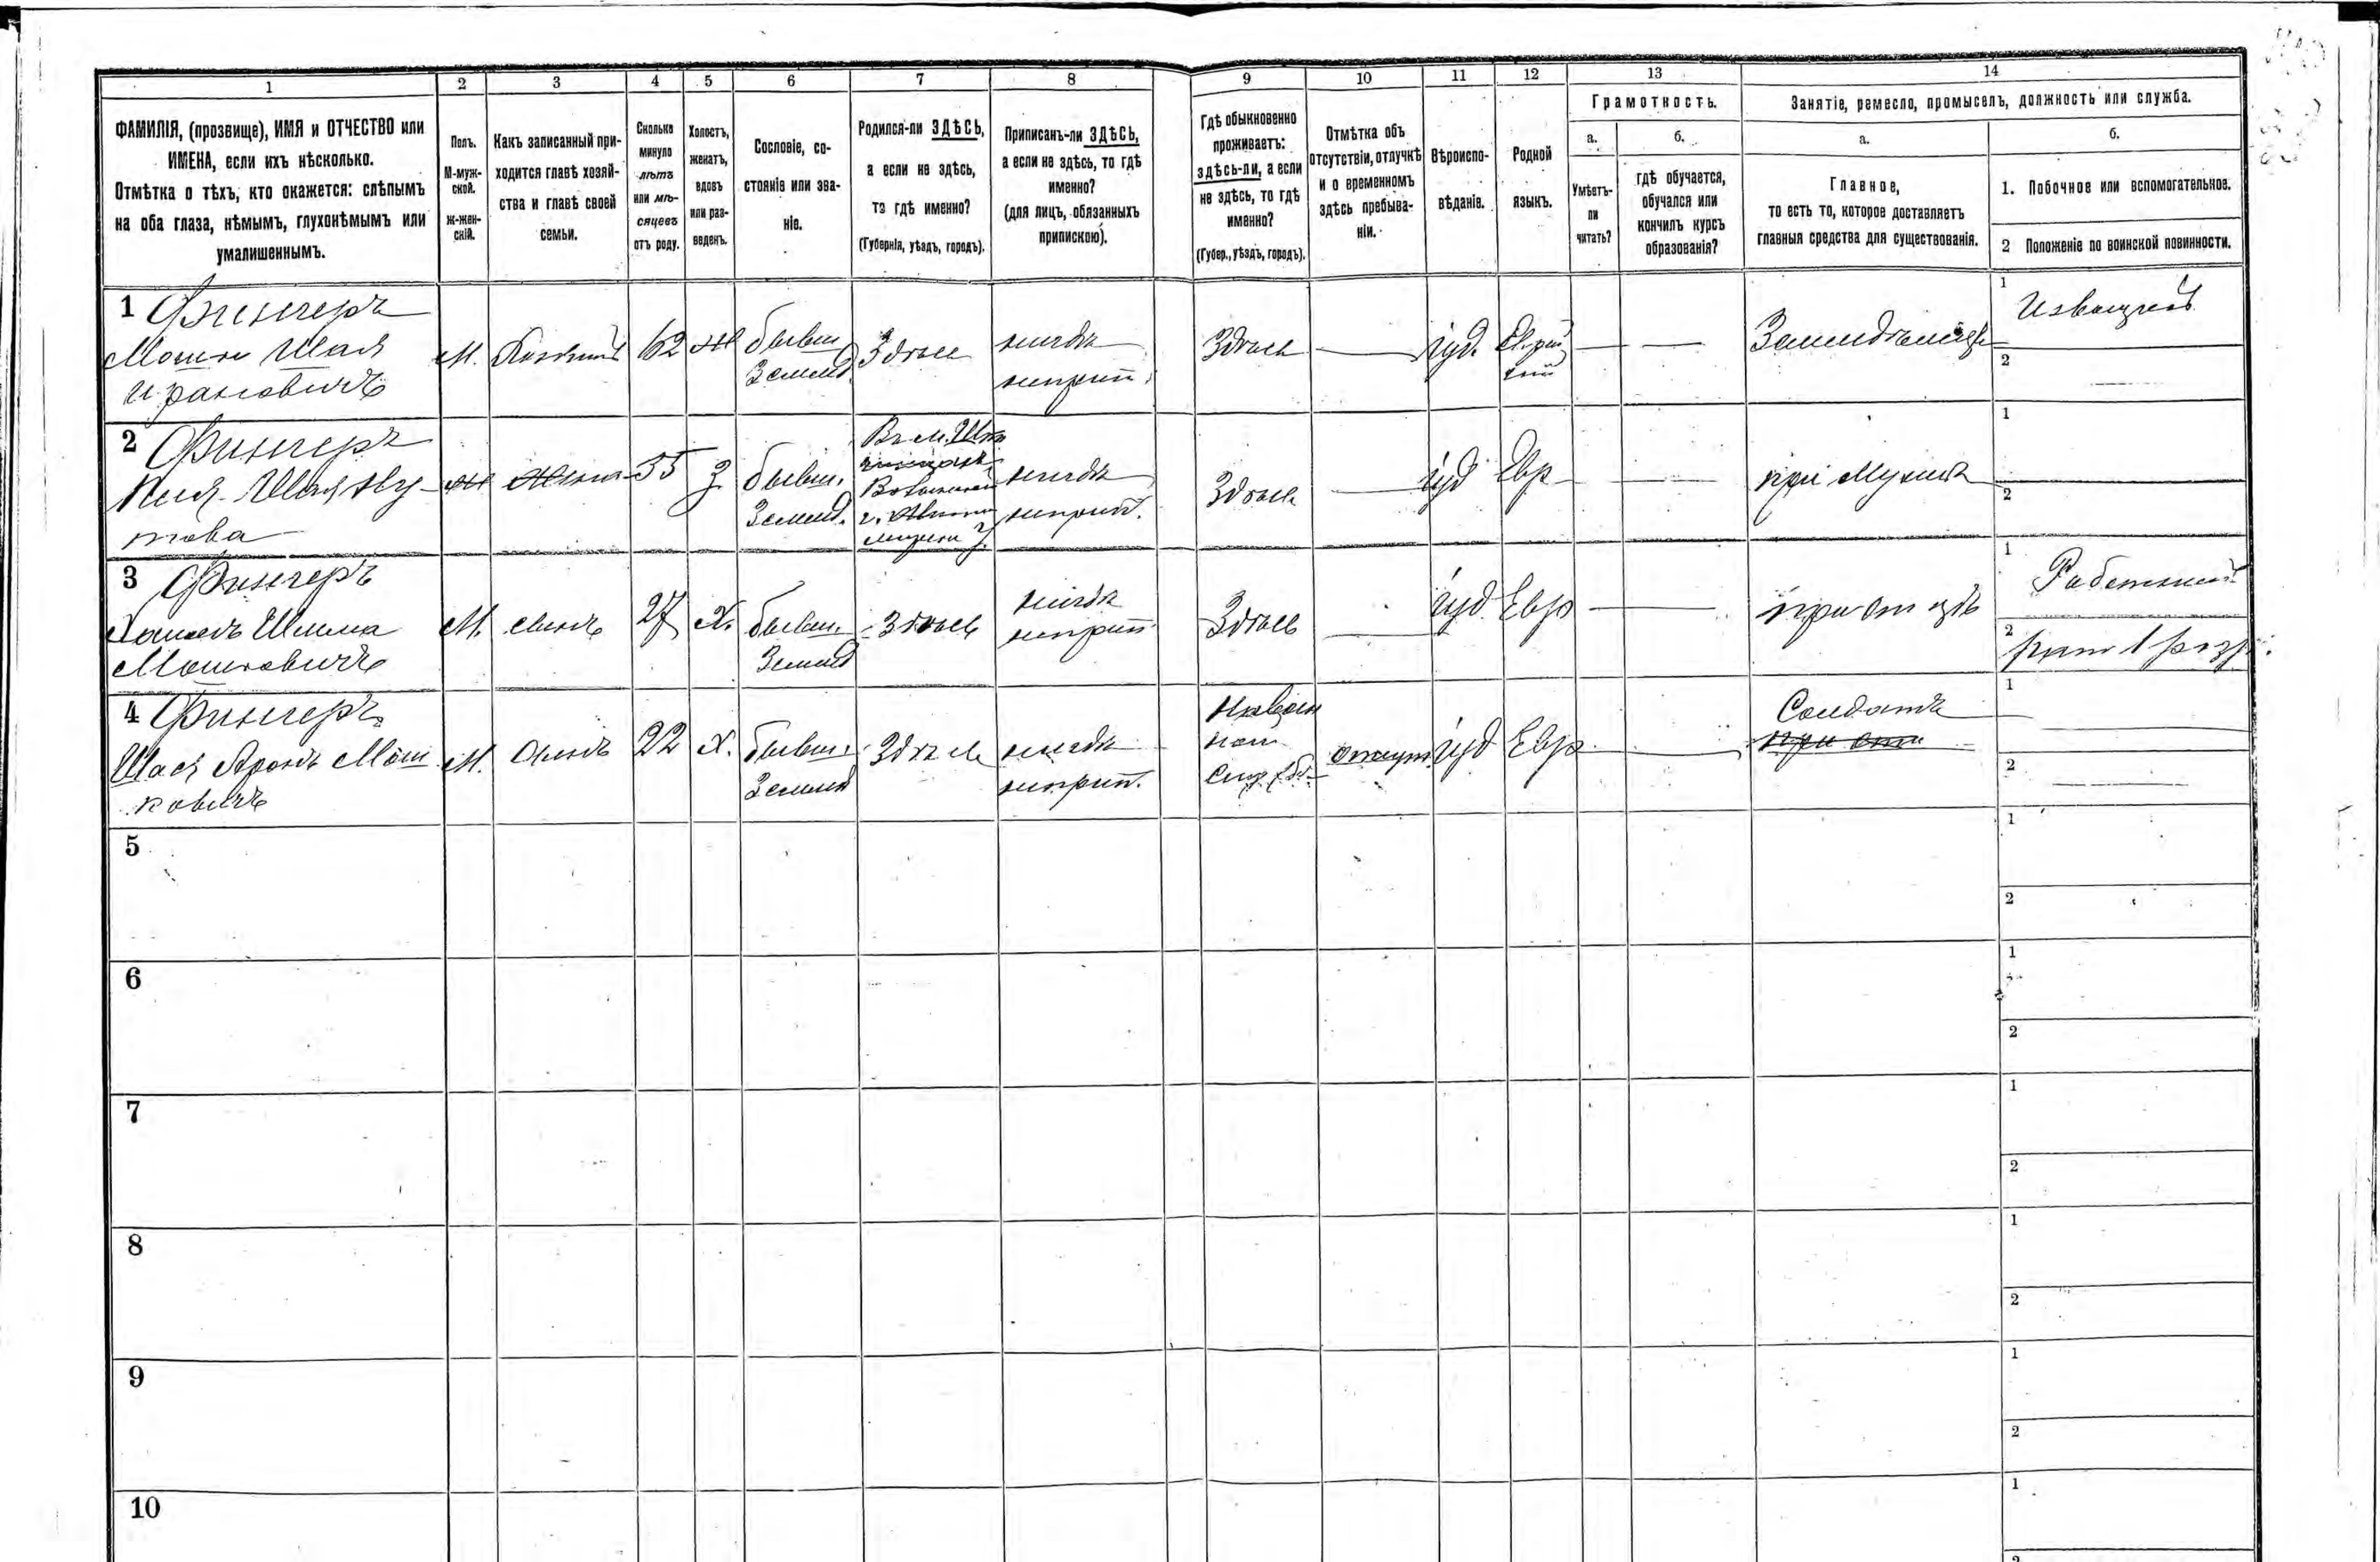 1 2 3 4 5 6 7 8 9 10 11 12 13 14
ФАМИЛІЯ, (прозвище), ИМЯ и ОТЧЕСТВО или
ИМЕНА, если ихъ нѣсколько.
Отмѣтка о тѣхъ, кто окажется: слѣпымъ
на оба глаза, нѣмымъ, глухонѣмымъ или
умалишеннымъ.
Полъ.
М-муж-
ской.
ж-жен-
скій.
Какъ записанный при-
ходится главѣ хозяй-
ства и главѣ своей
семьи.
Сколько
минуло
лѣтъ
или мѣ-
сяцевъ
отъ роду.
Холостъ,
женатъ,
вдовъ
или раз-
веденъ.
Сословіе, со-
стояніе или зва-
ніе.
Родился-ли ЗДѢСЬ,
а если не здѣсь,
то гдѣ именно?
(Губернія, уѣздъ, городъ).
Приписанъ-ли ЗДѢСЬ,
а если не здѣсь, то гдѣ
именно?
(для лицъ, обязанныхъ
припискою).
Гдѣ обыкновенно
проживаетъ:
здѣсь-ли, а если
не здѣсь, то гдѣ
именно?
(Губер., уѣздъ, городъ).
Отмѣтка объ
отсутствіи, отлучкѣ
и о временномъ
здѣсь пребыва-
ніи.
Вѣроиспо-
вѣданіе.
Родной
языкъ.
Грамотность.
а.
Умѣетъ-
ли
читать?
б.
гдѣ обучается,
обучался или
кончилъ курсъ
образованія?
Занятіе, ремесло, промыселъ, должность или служба.
а.
Главное,
то есть то, которое доставляетъ
главныя средства для существованія.
б.
1. Побочное или вспомогательное.
2 Положеніе по воинской повинности.
1 Фингеръ
Мошко Шая
М.
Хозяинъ
62
Ж
бывш.
Землед.
Здѣсь
нигдѣ
неприп.
Здѣсь
іуд.
Еврей
скій
Земледѣлецъ
1
Извощикъ
2
2 Фингеръ
ж
Жена
55
З
бывш.
Землед.
Волынской
нигдѣ
неприп.
Здѣсь
іуд
Евр
при мужѣ
1
2
3 Фингеръ
Мошковичъ
М.
сынъ
27
Х.
бывш.
Землед
Здѣсь
нигдѣ
неприп.
Здѣсь
іуд.
Евр
при отцѣ
1
2
4 Фингеръ
Шая Аронъ Мош
ковичъ
М.
сынъ
22
Х.
бывш.
Землед
Здѣсь
нигдѣ
неприп.
іуд
Евр
Солдатъ
при отц
1
2
5
1
2
6
1
2
7
1
2
8
1
2
9
1
2
10
1
2